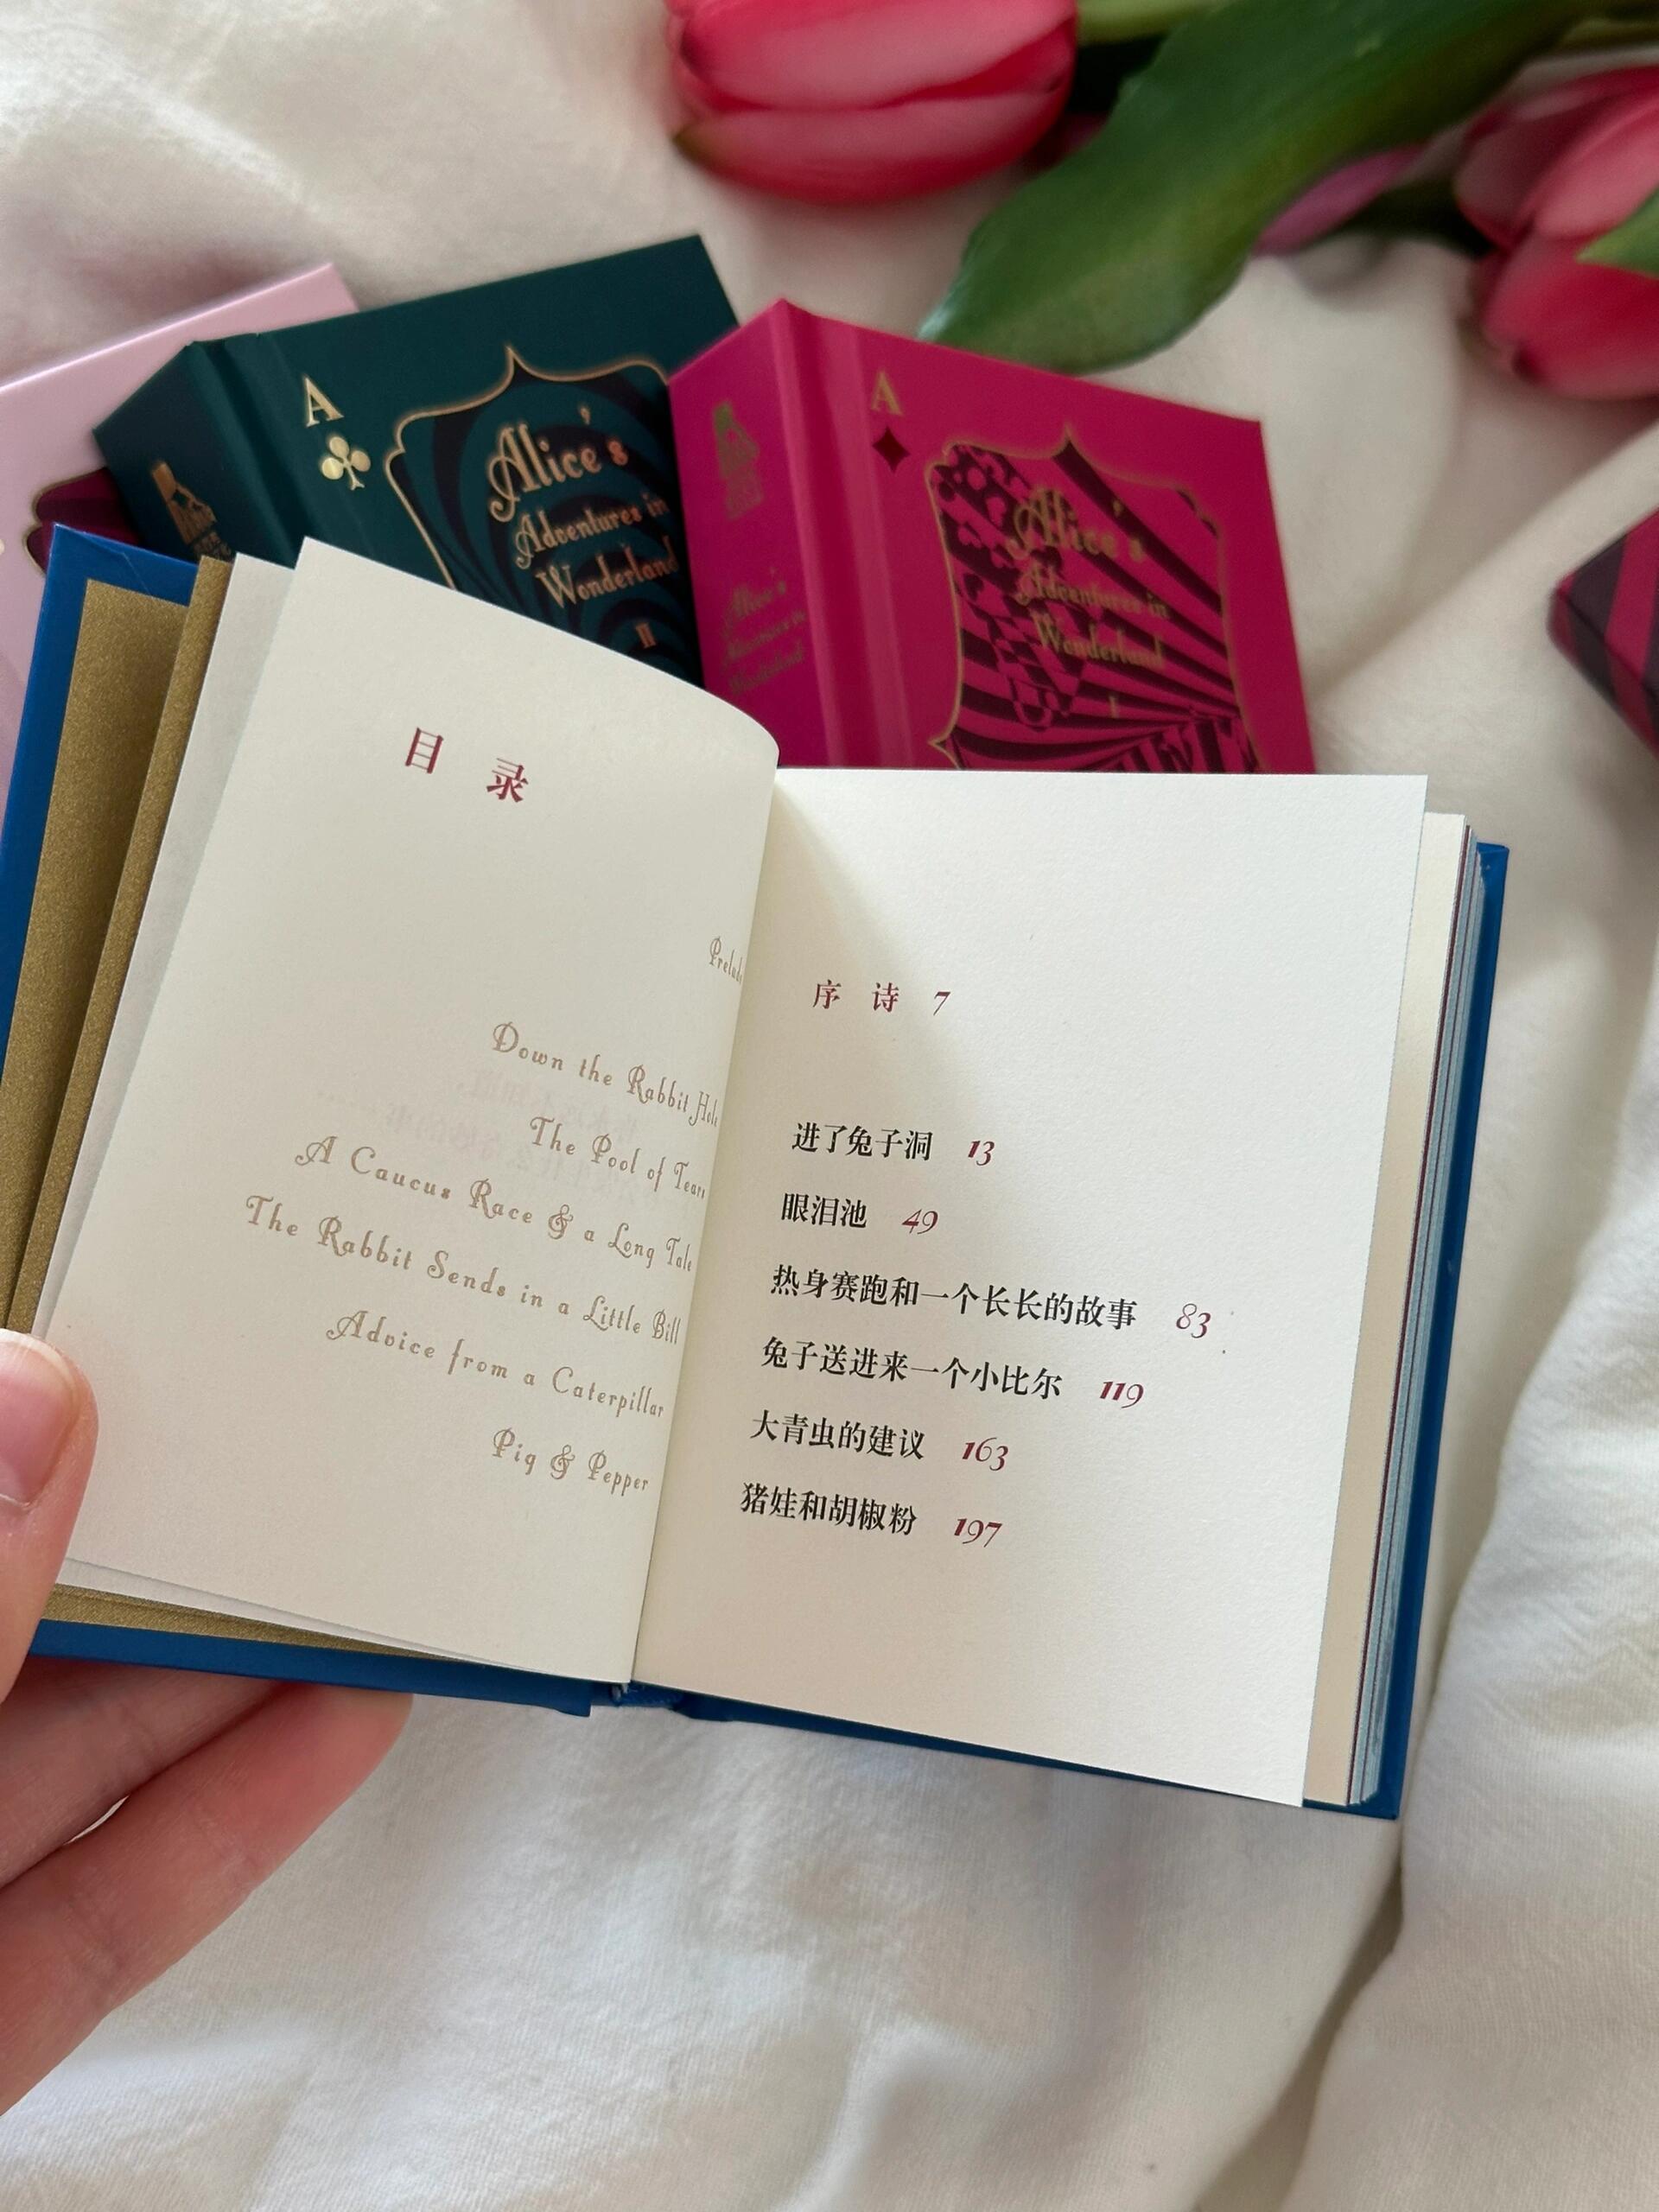 A
Alice's
Adventures in
Wonderland
II
A
Alice's
Adventures in
Wonderland
I
Alice's
Adventures in
Wonderland
目 录
Prelude
Down the Rabbit Hole
The Pool of Tears
A Caucus Race & a Long Tale
The Rabbit Sends in a Little Bill
Advice from a Caterpillar
Pig & Pepper
序 诗 7
进了兔子洞 13
眼泪池 49
热身赛跑和一个长长的故事 83
兔子送进来一个小比尔 119
大青虫的建议 163
猪娃和胡椒粉 197